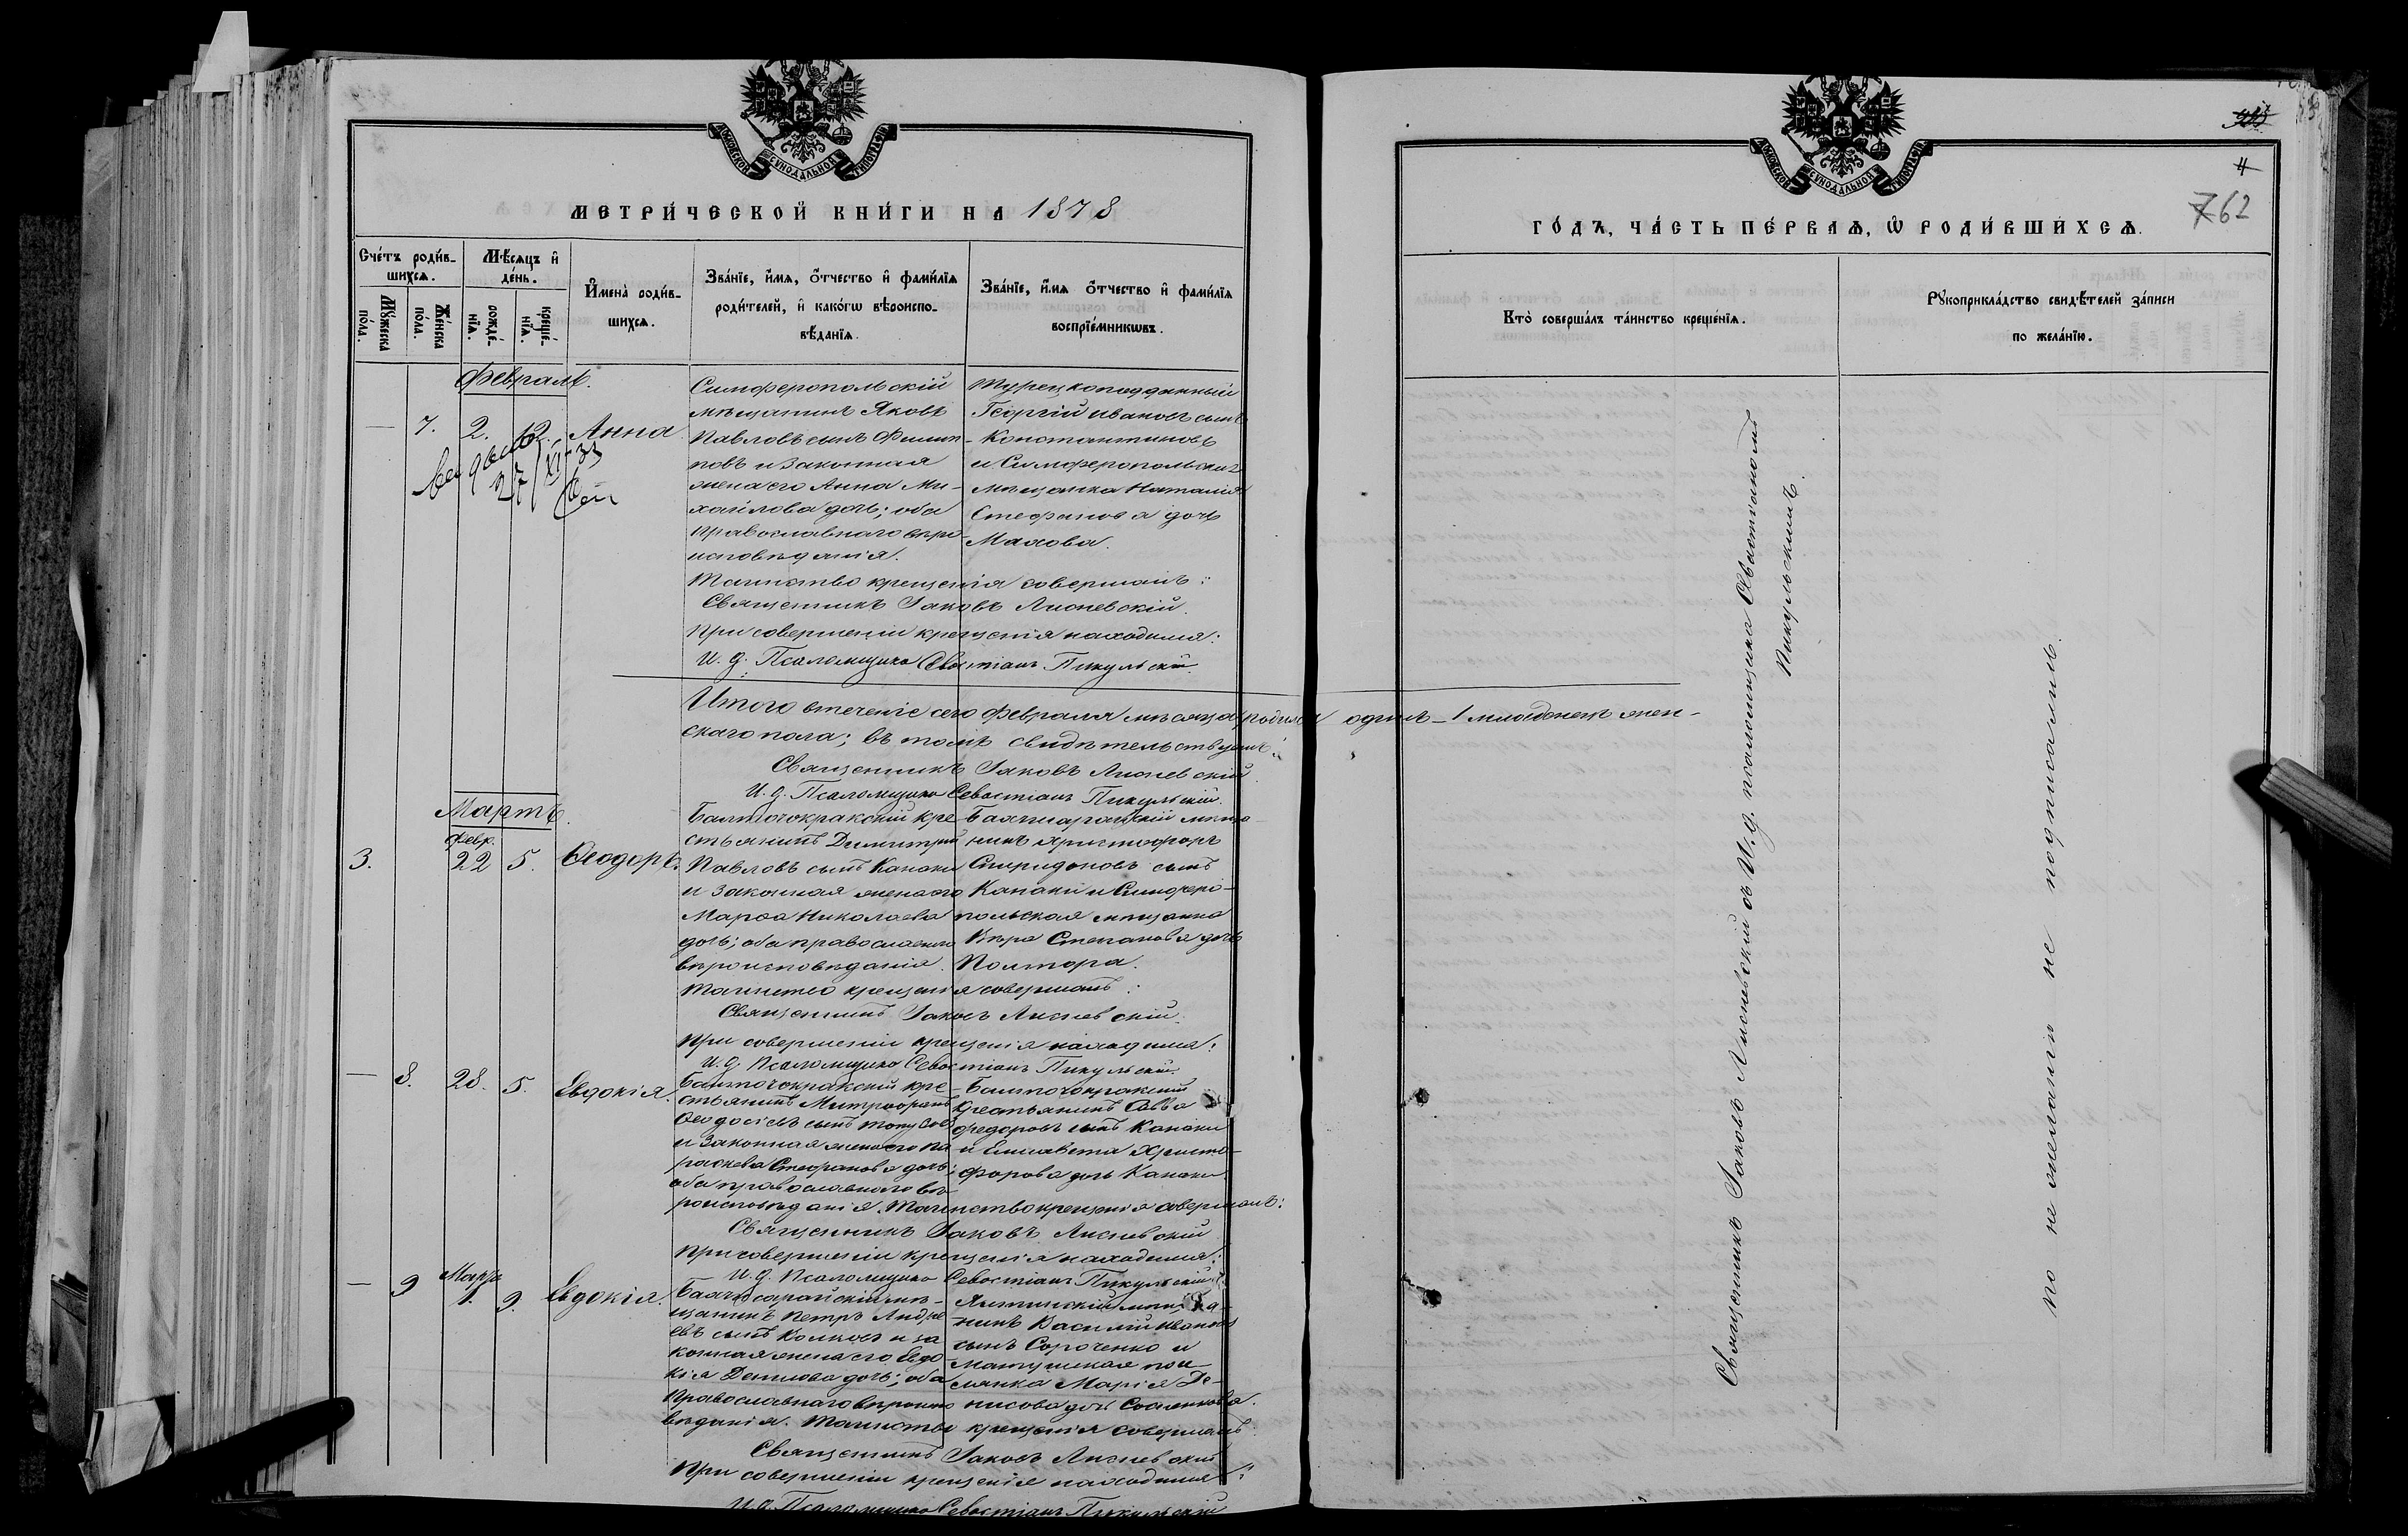 МОСКОВСКОЙ СѴНОДАЛЬНОЙ ТИПОГРАФІИ
МЕТРИ́ЧЕСКОЙ КНИ́ГИ НА 1878
Сче́тъ роди́в-
шихсѧ.
Мꙋ́жеска
по́ла.
Же́нска
по́ла.
Мѣ́сѧцъ и҆
де́нь.
рожде́-
нїѧ.
креще́-
нїѧ.
И҆мена̀ роди́в-
шихсѧ.
Зва́нїе, и҆́мѧ, ѻ҆́тчество и҆ фами́лїѧ
роди́телей, и҆ како́гѡ вѣ́роиспо-
вѣ́данїѧ.
Зва́нїе, и҆́мѧ ѻ҆́тчество и҆ фами́лїѧ
воспрїе́мникѡвъ.
Февраль.
— 7. 2. 12. Анна
27/XI-33
Симферопольскій
мѣщанинъ Яковъ
Павловъ сынъ Филип-
повъ и законная
жена его Анна Ми-
хайлова дочь; оба
православнаго вѣро-
исповѣданія.
Турецкоподданный
Георгій Ивановъ сынъ
Константиновъ
и Симферопольская
мѣщанка Наталія
Стефанова дочь
Махова.
Таинство крещенія совершалъ:
Священникъ Іаковъ Лисневскій.
При совершеніи крещенія находился:
И. д. Псаломщика Севастіанъ Пикульскій.
Итого втеченіе сего Февраля мѣсяца родился одинъ – 1 младенецъ жен-
скаго пола; въ томъ свидѣтельствуемъ:
Священникъ Іаковъ Лисневскій.
И. д. Псаломщика Севастіанъ Пикульскій.
Мартъ.
Февр.
3. 22 5. Ѳеодоръ.
Балточокракскій кре-
стьянинъ Димитрій
Павловъ сынъ Канаки
и законная жена его
Марѳа Николаева
дочь; оба православнаго
вѣроисповѣданія.
Бахчисарайскій мѣща-
нинъ Христофоръ
Спиридоновъ сынъ
Канаки и Симферо-
польская мѣщанка
Вѣра Степанова дочь
Полтора.
Таинство крещенія совершалъ:
Священникъ Іаковъ Лисневскій.
При совершеніи крещенія находился:
И. д. Псаломщика Севастіанъ Пикульскій.
— 8. 28. 5. Евдокія.
Балточокракскій кре-
стьянинъ Митрофанъ
Ѳеодосіевъ сынъ
и законная жена его Па-
раскева Стефанова дочь;
оба православнаго вѣ-
роисповѣданія.
Балточокракскій
крестьянинъ Савва
Федоровъ сынъ Канаки
и Елисавета Христо-
форова дочь Канаки.
Таинство крещенія совершалъ:
Священникъ Іаковъ Лисневскій
При совершеніи крещенія находился:
И. д. Псаломщика Севастіанъ Пикульскій.
— 9 Март. 1. 9. Евдокія.
Бахчисарайскій мѣ-
щанинъ Петръ Андре-
евъ сынъ и за-
конная жена его Евдо-
кія Данилова дочь; оба
православнаго вѣроиспо-
вѣданія.
Ялтинскій мѣща-
нинъ Василій Ивановъ
сынъ Сороченко и
посе-
лянка Марія Де-
нисова дочь
Таинство крещенія совершалъ
Священникъ Іаковъ Лисневскій
При совершеніи крещенія находился:
И. д. Псаломщика Севастіанъ Пикульскій
МОСКОВСКОЙ СѴНОДАЛЬНОЙ ТИПОГРАФІИ
4
762
ГО́ДЪ, ЧА́СТЬ ПЕ́РВАѦ, Ѡ҆ РОДИ́ВШИХСѦ.
Кто̀ соверша́лъ та́инство креще́нїѧ.
Рꙋкоприкла́дство свидѣ́телей за́писи
по жела́нїю.
Священникъ Іаковъ Лисневскій съ И. д. псаломщика Севастіаномъ
Пикульскимъ.
по не желанію не подписались.